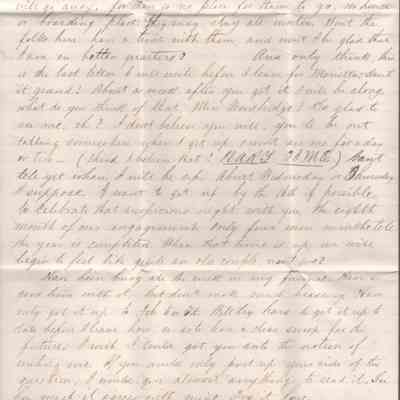 will go away. for there is no place for them to go, no house
or boarding place. They may stay all winter. Wont the
folks here have a time with them, and wont I be glad that
I have on better quarters? And only think, this
is the last letter I will write before I leave for Marietta. Aint
it grand! About a week after you get it I will be along
what do you think of that, Miss Woodbridge? Be glad to
see me, eh? I dont believe you will. You'll be out
talking somewhere when I get up, & wont see me for a day
or two— (think I believe that!) Cant
tell yet when I will be up. About Wednesday or Thursday
I suppose. I want to get up by the 8th if possible,
to celebrate that auspicious night with you the eighth
month of our engagement. Only four more months till
the year is completed. When that time is up we will
begin to feel like quite an old couple wont we?
Have been busy all the week in my journal. Have a
good time with it, but dont make much headway. Have
only got it up to Feb. Will try hard to get it up to
date before I leave here, so as to have a clean sweep for the
future. I wish I could get you into the notion of
writing one. If you would only post up your side of the
question, I would give almost anything to read it.